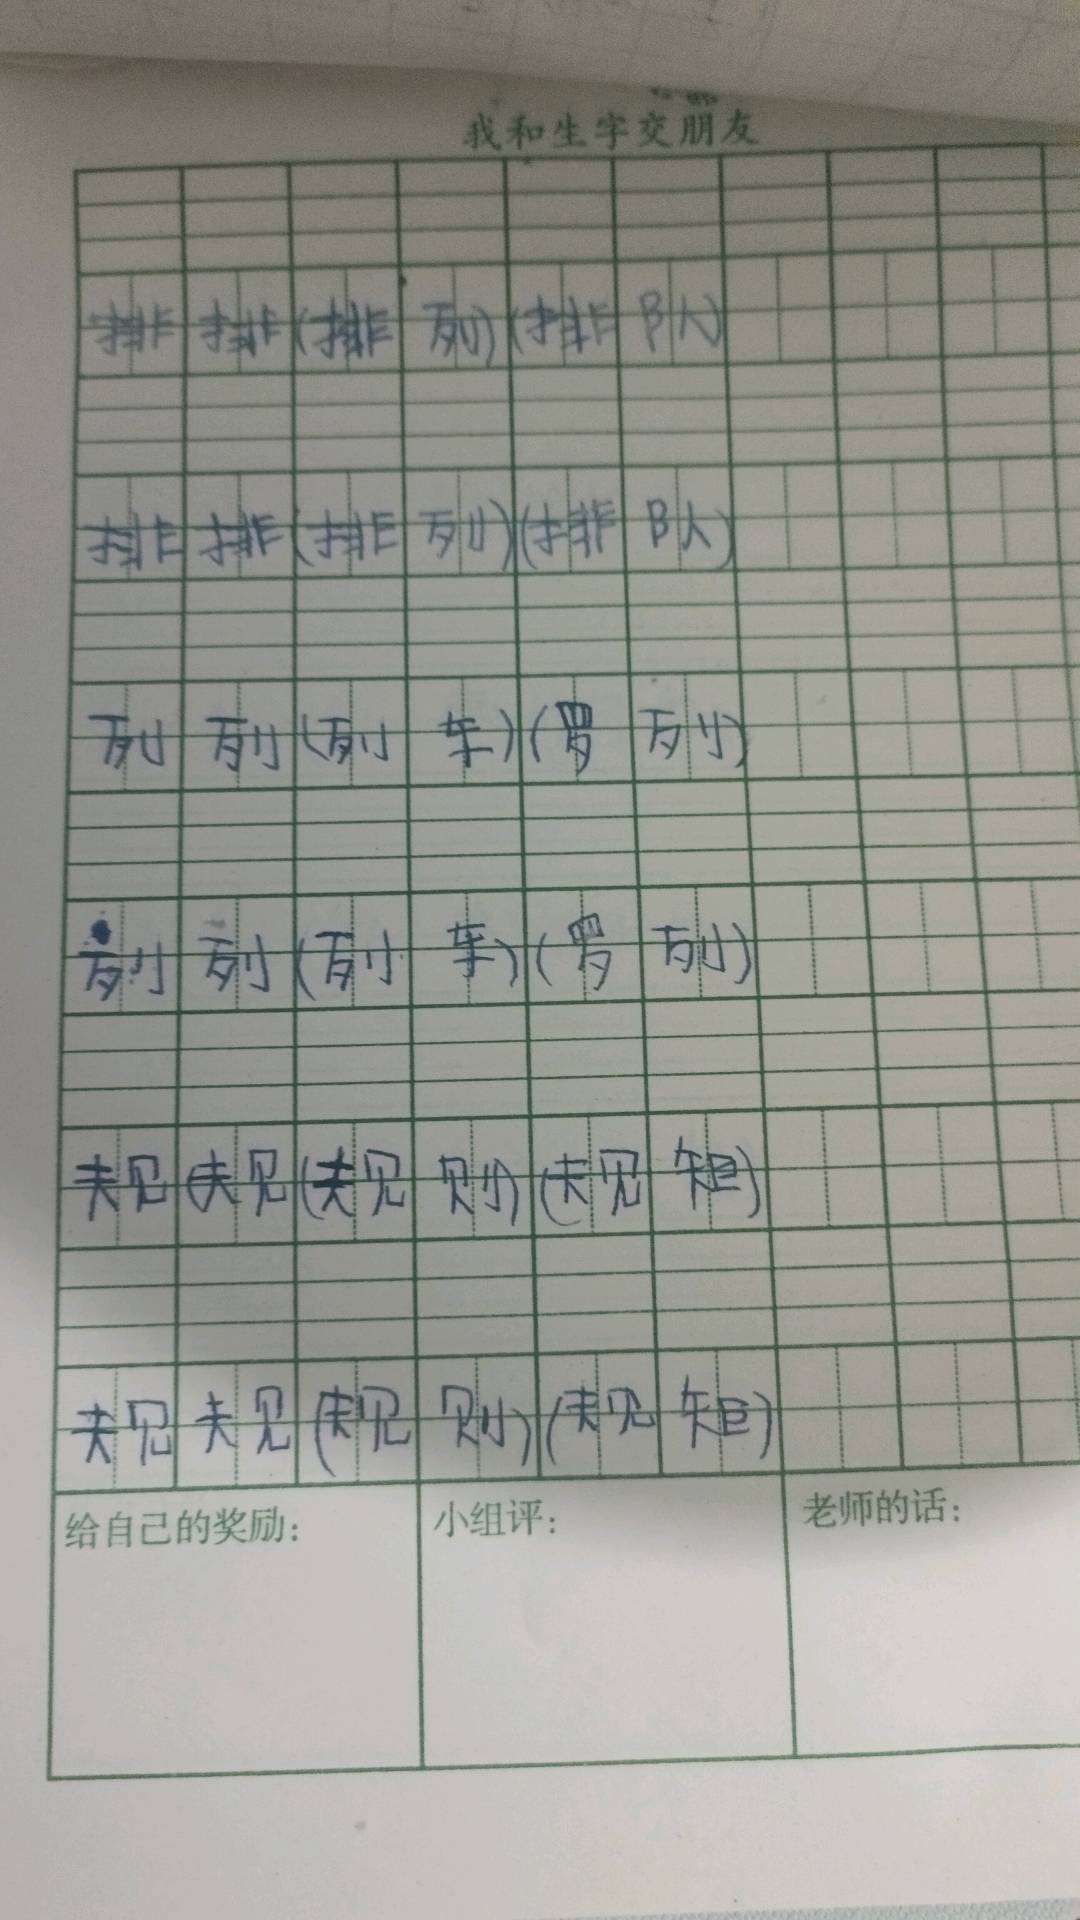 我和生字交朋友
排排(排列)(排队)
排排(排列)(排队)
列列(列车)(罗列)
列列(列车)(罗列)
规规(规则)(规矩)
规规(规则)(规矩)
给自己的奖励:
小组评:
老师的话: